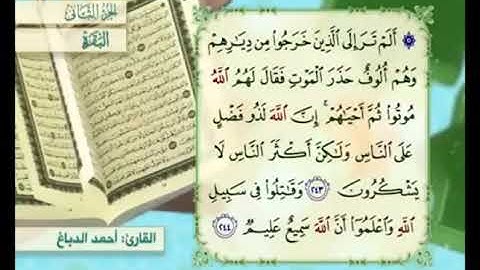 الجزء الثاني
البقرة
۞ أَلَمْ تَرَ إِلَى الَّذِينَ خَرَجُوا مِن دِيَارِهِمْ
وَهُمْ أُلُوفٌ حَذَرَ الْمَوْتِ فَقَالَ لَهُمُ اللَّهُ
مُوتُوا ثُمَّ أَحْيَاهُمْ ۚ إِنَّ اللَّهَ لَذُو فَضْلٍ
عَلَى النَّاسِ وَلَٰكِنَّ أَكْثَرَ النَّاسِ لَا
يَشْكُرُونَ ٢٤٣ وَقَاتِلُوا فِي سَبِيلِ
اللَّهِ وَاعْلَمُوا أَنَّ اللَّهَ سَمِيعٌ عَلِيمٌ ٢٤٤
القارئ: أحمد الدباغ